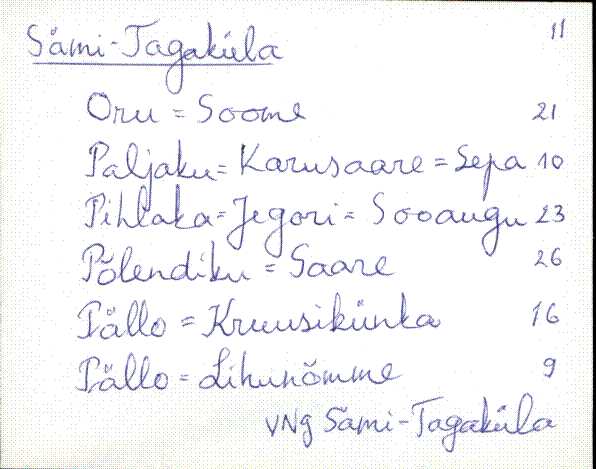 Sämi-Tagaküla 11
Oru = Soome 21
Paljaku = Karusaare = Sepa 10
Pihlaka = Jegori = Sooaugu 23
Põlendiku = Saare 26
Pällo = Kruusikünka 16
Pällo = Lihunõmme 9
VNg Sämi-Tagaküla